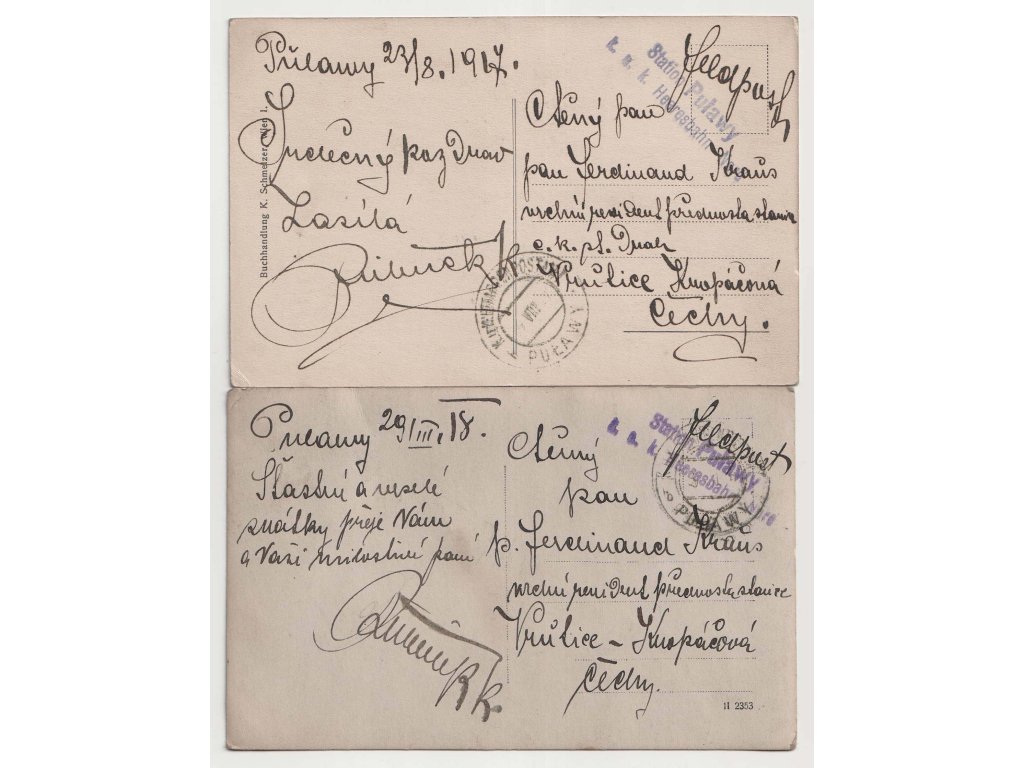 Půlawy 23/8. 1917.
Srdečný pozdrav
Zasílá
Buchhandlung K. Schmelzer, Wien I.
Feldpost
Station Puławy
k. u. k. Heeresbahn
Ctěný pan
pan Ferdinand Kraus
vrchní revident přednosta stanice
c. k. st. drah
Vrutice Kropáčová
Čechy.
PUŁAWY
VIII
Pulawy 29/III. 18.
Šťastné a veselé
svátky přeje Vám
a Vaší milostivé paní
Feldpost
Station Puławy
k. u. k. Heeresbahn
Ctěný
pan
p. Ferdinand Kraus
vrchní revident přednosta stanice
Vrutice - Kropáčová
Čechy.
H 2353